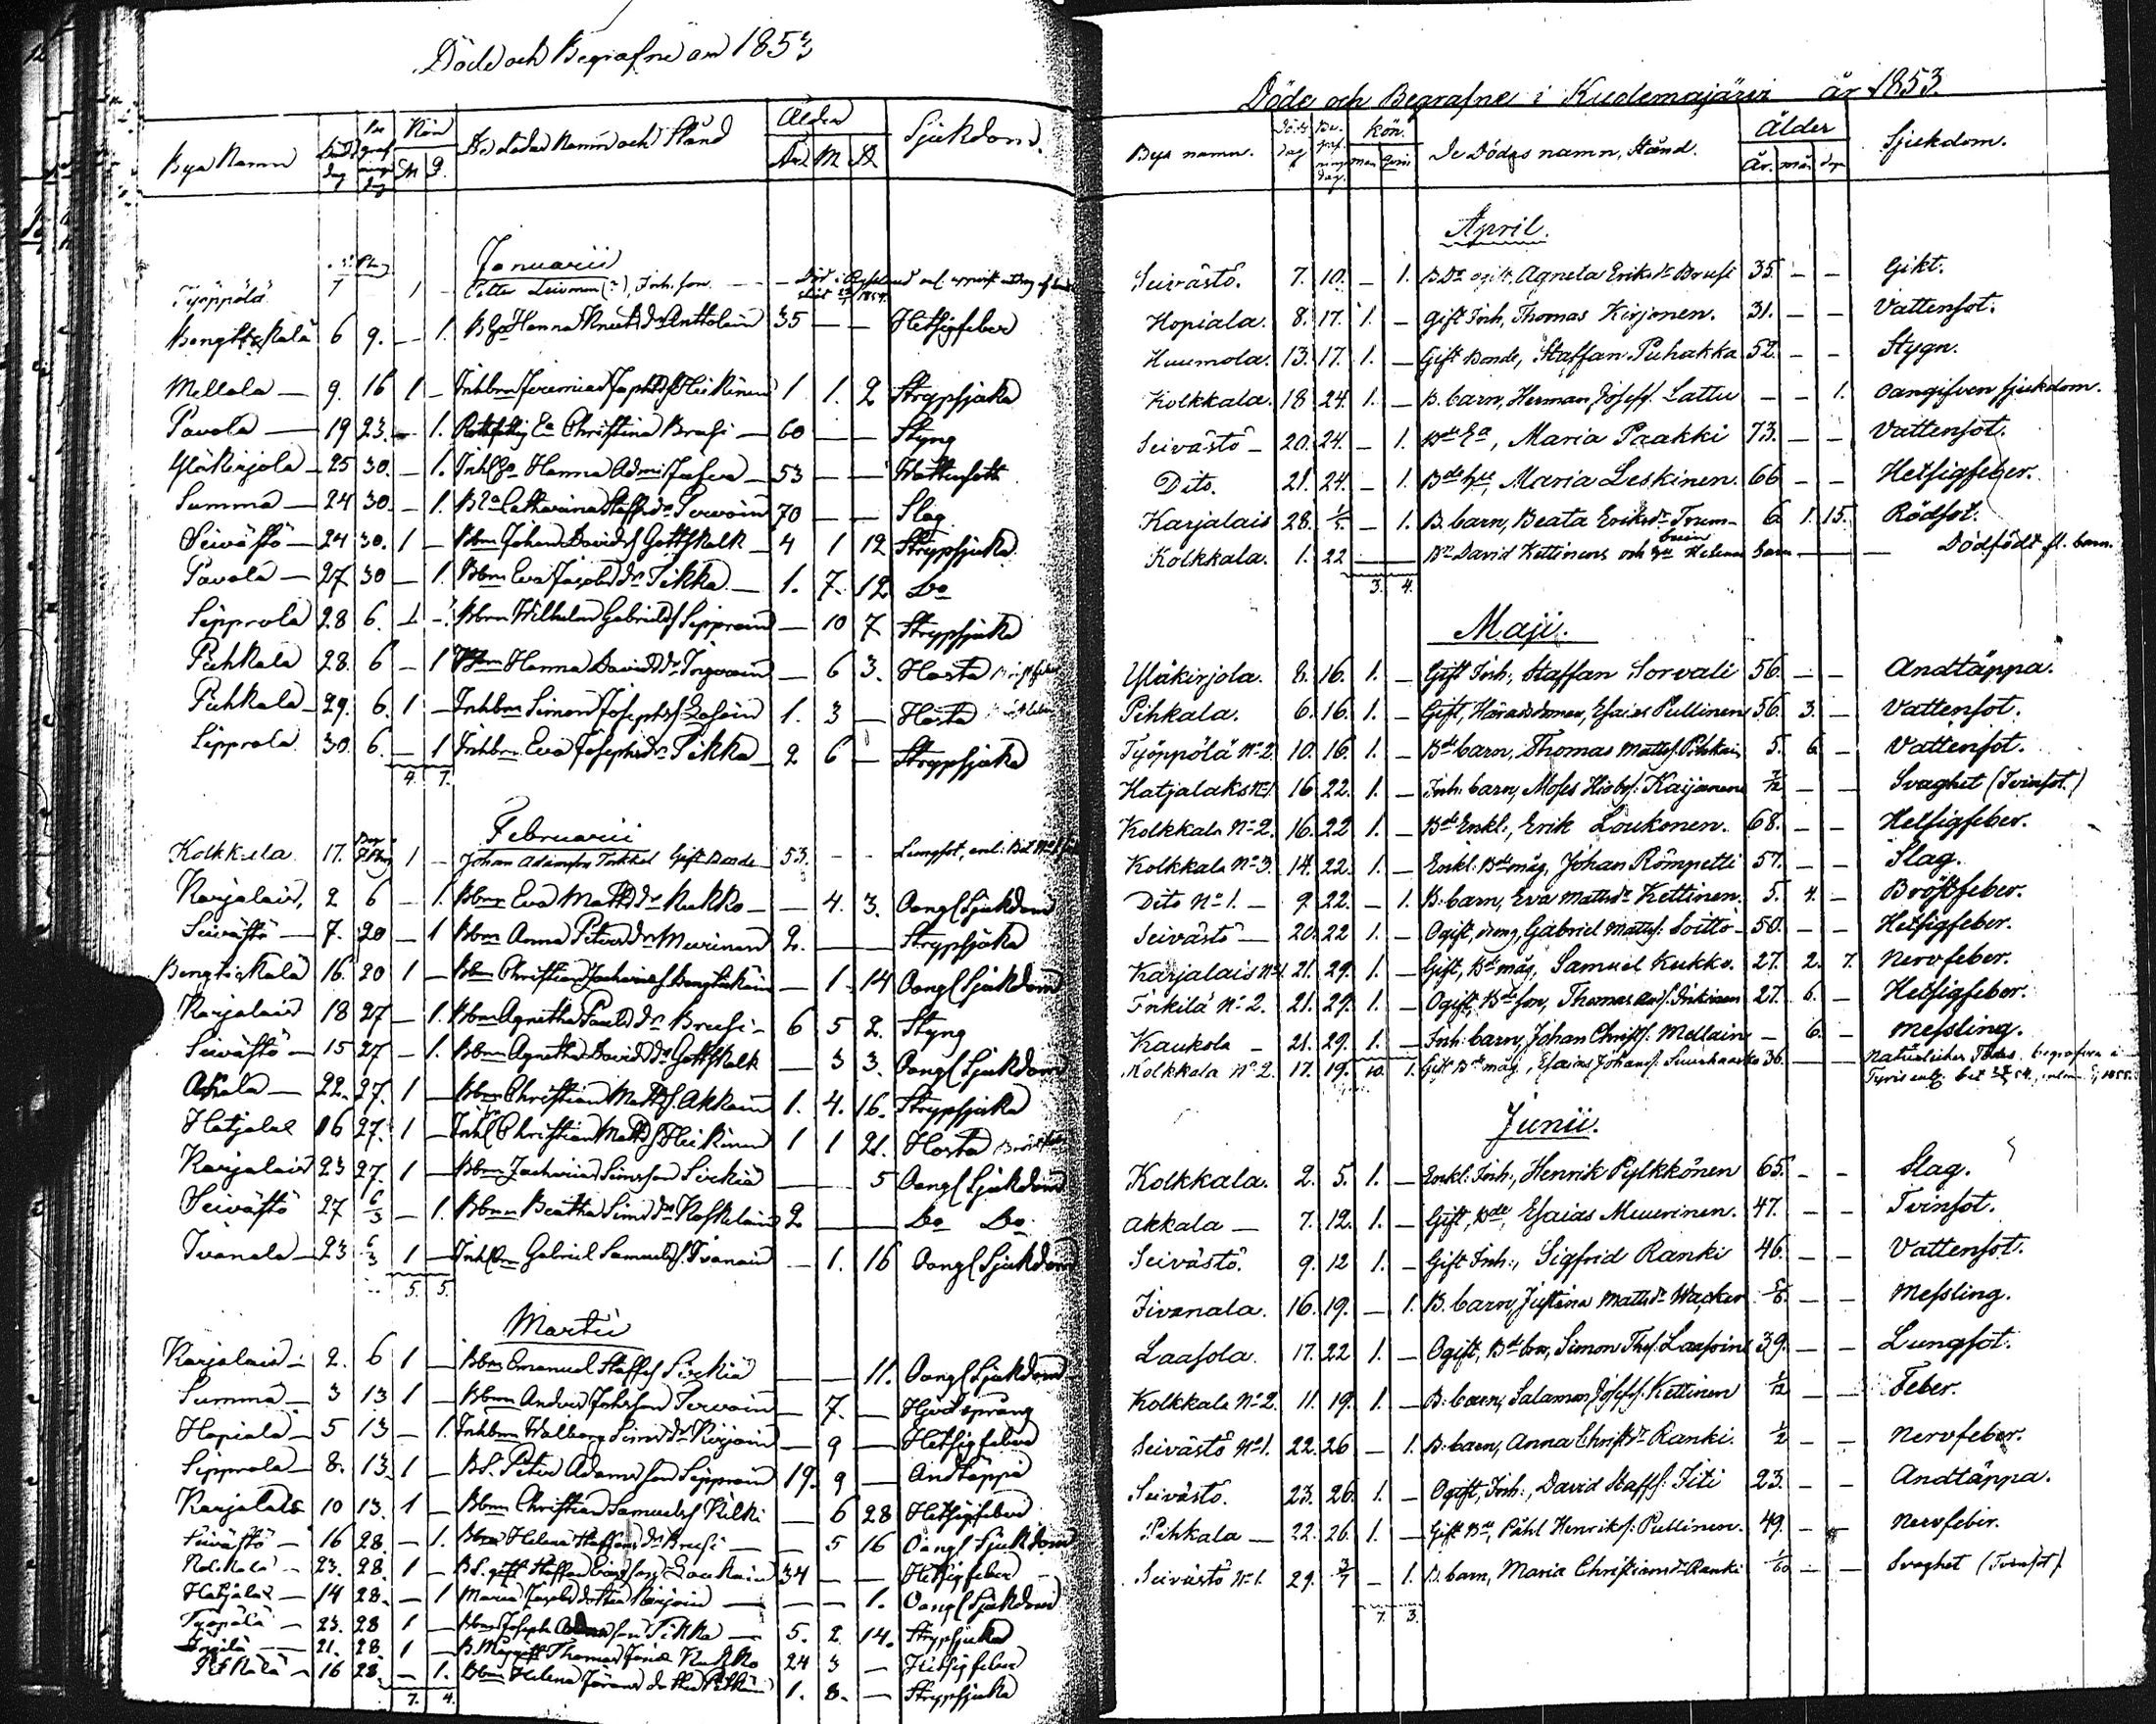 Döde och Begrafne år 1853
Bya Namn Död dag Be graf nings dag Kön M Q De dödas Namn och Stånd Ålder År M D Sjukdom.
Januarii
Tyoppölä 7 1 - Petter Leivonen (?), Inh. son
Bengtskälä 6 9. - 1. Hanna Knuts dr Anttolain 35 - - Hetsigfeber
Mellola - 9. 16 1 - Inhbrn Jeremias Josephs Heikinen 1 1. 2 Strypsjuka
Pavola - 19 23. - 1. Rotfattig Ea Christina Brusi - 60 - - Styng
Yläkirjola - 25 30. - 1. Inh Ea Hanna Adms 53 - - Wattusott
Summa - 24 30 - 1. Catharina Staffds Torvoin 70 - - Slag
Seivästö - 24 30. 1 - Bbrn Johan Davids Gottskalk - 4 1 12 Strypsjuka
Pavola - 27 30 - 1. Bbrn Eva Jacobs dr Tikka - 1. 7. 12 Do
Sipprola 28 6. 1 - Bbrn Wilhelm Gabriels Sipproin - 10 7 Strypsjuka
Pihkala 28. 6 - 1 Bbrn Hanna Davids dr Torvoin - 6 3. Hosta
Pihkala - 29. 6. 1 - Inhbrn Simon Josephs 1. 3 - Hosta
Sipprola 30. 6. - 1 Inhbrn Eva Josephs dr Tikka - 2 6 - Strypsjuka
4. 7.
Februarii
Kolkkala 17. 1 - Johan Adamsson Torkkel Gift Bonde 53. - - Lungsot,
Karjalais, 2 6 - 1. Bbrn Eva Matts dr Kukko - - 4. 3. Oangl Sjukdom
Seivästö - 7. 20 - 1 Bbrn Anna Peters dr Muurinen 2. - - Strypsjuka
Bengtskälä 16. 20 1 - Bbrn Christian Zacharias Bengtskäin - 1 14 Oangl Sjukdom
Karjalais 18 27 - 1. Bbrn Agnetha Pauls dr Brusi - 6 5 2. Styng
Seivästö - 15 27 - 1. Bbrn Agnetha Davids dr Gottskalk - 3 3. Oangl Sjukdom
Akkala - 22. 27. 1 - Bbrn Christian Matts. Akkain 1. 4. 16. Strypsjuka
Hatjalax 16 27. 1 - Inh Christian Matts Heikinen 1 1 21. Hosta
Karjalais 23 27. 1 - Bbrn Zacharias Simsson Sirkiä - - 5 Oangl Sjukdom
Seivästö 27 6/3 - 1. Bbrn Beatha Sims dr Koskelain 2 - - Do Do
Ivanala - 23 6/3 1 - Inh Brn Gabriel Samuels. Ivanain - 1. 16 Oangl Sjukdom
5. 5.
Martii
Karjalais - 2. 6 1 - Bbrn Emanuel Staffs Sirkiä - - 11. Oangl Sjukdom
Summa - 3 13 1 - Bbrn Anders Johsson Torvoin - 7. - Hjertsprång
Hopiala - 5 13 - 1. Inhbrn Walborg Sims dr Kirjoin - 9 - Hetsigfeber
Sipprola - 8. 13. 1 - BS. Peter Adamsson Sipproin 19. 9 - Andtäppa
Karjalais 10 13. 1 - Bbrn Christian Samuels Kälki - 6 28 Hetsigfeber
Seivästö - 16 28. - 1. Bbrn Helena Staffans dr Brusi - - 5 16 Oangl Sjukdom
Kolkala - 23. 28. 1 - BS. gift Staffan Loukain 34 - - Hetsigfeber
Hatjalax - 14 28. - 1 Maria Jacobs dotter Kirjoin - - - 1. Oangl Sjukdom
Tyopälä - 23. 28 1 - Bbrn Joseph Adamsson Tikka - 5. 2. 14. Strypsjuka
Inkilä - 21. 28. 1 - B. Måg gift Thomas Kukko 24 3 - Hetsigfeber
16 28. - 1. Bbrn Helena Görans dotter 1. 8. - Strypsjuka
7. 4.
Döde och Begrafne i Kuolemajärvi år 1853.
Bya namn. Döds dag Be graf nings dag. Kön. man Qvin De Dödas namn, stånd. Ålder År. mån. dag. Sjukdom.
April.
Seivästö. 7. 10. - 1. Agneta Eriksdr Brusi 35 - - Gikt.
Hopiala. 8. 17. 1. - gift Inh, Thomas Kirjonen. 31. - - Vattensot.
Huumola. 13. 17. 1. - Gift Bonde, Staffan Puhakka 52. - - Stygn.
Kolkkala. 18. 24. 1. - B. barn, Herman Josefs. Lattu - - 1. oangifven sjukdom.
Seivästö - 20. 24. - 1. Bde Ea, Maria Paakki 73. - - Vattensot.
Dito. 21. 24. - 1. Bde hu, Maria Leskinen. 66 - - Hetsigfeber.
Karjalais 28. 1/5. - 1. B. barn, Beata Eriksdr Trum- 6 1. 15. Rödsot.
Kolkkala. 1. 22 - Br David Kettinens och Hu Helenas barn - - Dödfödt fl. barn.
3. 4.
Maji.
Yläkirjola. 8. 16. 1. - Gift Inh, Staffan Sorvali 56. - - Andtäppa.
Pihkala. 6. 16. 1. - Gift, Häradsdomar, Esaias Pullinen 56. 3. - Vattensot.
Työppölä No 2. 10. 16. 1. - Bde barn, Thomas Matts. Pihkain 5. 6. - Vattensot.
Hatjalaks No 1. 16 22. 1. - Inh. barn, Moses Hiobs. Kaijanen 7/12 - - Svaghet (Tvinsot.)
Kolkkala No 2. 16. 22 1. - Bde Enkl., Erik Loukonen. 68. - - Hetsigfeber.
Kolkkala No 3. 14. 22. 1. - Enkl. Bde måg, Johan Römpetti 57. - - Slag.
Dito No 1. - 9. 22. - 1. B. barn, Eva Mattsdr Kettinen. 5. 4. - Bröstfeber.
Seivästö - 20. 22 1. - Ogift, dreng, Gabriel Matts. Soitto - 50. - - Hetsigfeber.
Karjalais No 1. 21. 29. 1. - Gift, Bde måg, Samuel Kukko. 27. 2. 7. Nervfeber.
Inkilä No 2. 21. 29. 1. - Ogift, Bde son, Thomas Ands. Inkinen 27. 6. - Hetsigfeber.
Kaukola - 21. 29. 1. - Inh. barn, Johan Christs. Mellain - 6. - Messling.
Kolkkala No 2. 17. 19. 10. 1. Gift Bde måg, Esaias Johans. Suurhaasko 36. - - Naturlicher Todes. begrafven i
Tyris enl. bet 1855.
Junii.
Kolkkala. 2. 5. 1. - Enkl: Inh., Henrik Pylkkönen 65. - - Slag.
Akkala - 7. 12. 1. - Gift, Bde, Esaias Muurinen. 47. - - Tvinsot.
Seivästö. 9. 12 1. - Gift Inh:, Sigfrid Ranki 46. - - Vattensot.
Iivanala. 16. 19. - 1. B. barn, Justina Mattsdr Wacker - - Messling.
Laasola. 17. 22 1. - Ogift, Bde bror, Simon Thos. Laasoin 39. - - Lungsot.
Kolkkala No 2. 11. 19. 1. - B. barn, Salamon Josefs. Kettinen 1/12 - - Feber.
Seivästö No 1. 22. 26 - 1. B. barn, Anna Christsdr Ranki. 1/2 - - Nervfeber.
Seivästö. 23. 26. 1. - Ogift, Inh:, David Staffs: Titi 23. - - Andtäppa.
Pihkala - 22. 26. 1. - Gift Bde, Påhl Henriks: Pullinen. 49. - - Nervfeber.
Seivästö No 1. 29. 3/7 - 1. B. barn, Maria Christiansdr Ranki - - Svaghet (Tvinsot).
7. 3.